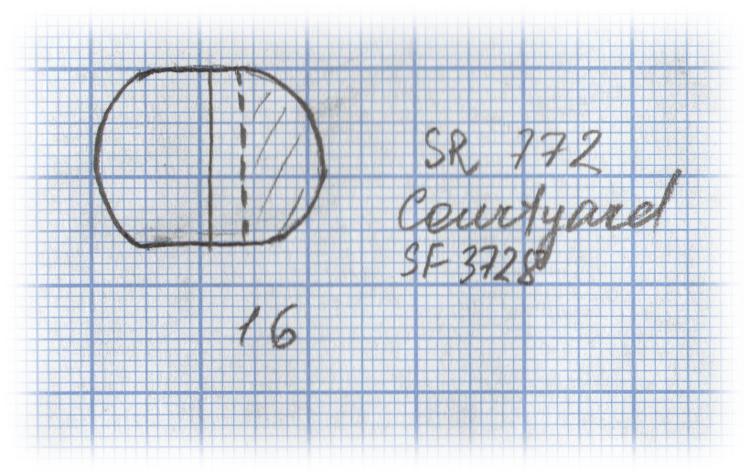 SR 772
Courtyard
SF 3728
16